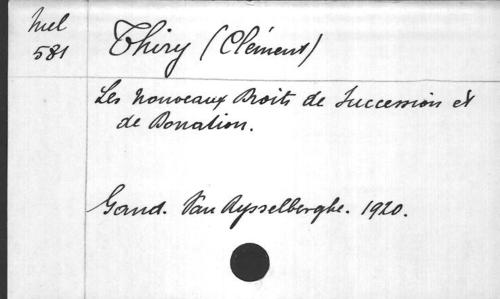 Mel
581
Thiry (Clément)
Les nouveaux Droits de Succession et
de Donation.
Gand. Van Rysselberghe. 1920.